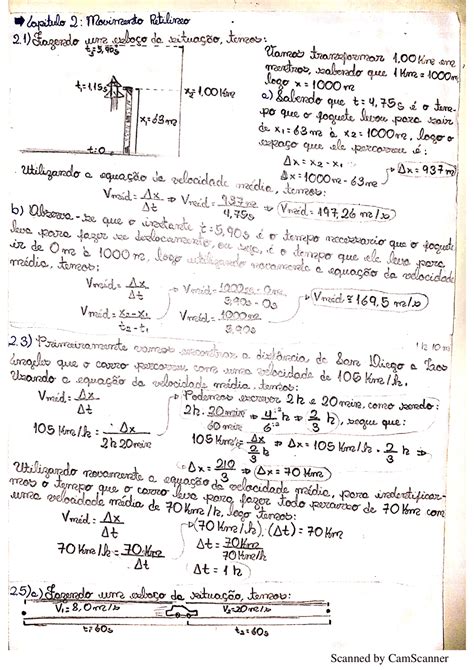 ➡ Capitulo 2: Movimento Retilineo
2.1) Fazendo um esboço da situação, temos:
t₂=5,90s
t₁=1,15s
x₂=1,00Km
x₁=63m
t₀=0
Vamos transformar 1,00Km em
metros, sabendo que 1Km=1000m
logo x=1000m
a) Sabendo que t=4,75s é o tem-
po que o foguete levou para sair
de x₁=63m à x₂=1000m, logo o
espaço que ele percorreu é:
Δx=x₂-x₁
Δx=1000m-63m ⇒ Δx=937m
Utilizando a equação da velocidade média, temos:
Vméd=Δx/Δt ⇒ Vméd=937m/4,75s ⇒ Vméd=197,26m/s
b) Observa-se que o instante t=5,90s é o tempo necessario que o foguete
leva para fazer se deslocamento, ou seja, é o tempo que ele leva para
ir de 0m à 1000m, logo utilizando novamente a equação da velocidade
média, temos:
Vméd=Δx/Δt
Vméd=x₂-x₁/t₂-t₁
Vméd=1000m-0m/5,90s-0s
Vméd=1000m/5,90s
Vméd≅169,5m/s
2.3) Primeiramente vamos encontrar a distância de San Diego a Los
Angeles que o carro percorreu com uma velocidade de 105Km/h.
Usando a equação da velocidade média, temos:
Vméd=Δx/Δt
105Km/h=Δx/2h20min
Podemos escrever 2h e 20min, como sendo:
2h.20min/60min ⇒ 4h/6 ⇒ 2/3h, segue que:
105Km/h=Δx/2/3h ⇒ Δx=105Km/h.2/3h
Δx=210/3 ⇒ Δx=70Km
Utilizando novamente a equação da velocidade média, para indentificar-
mos o tempo que o carro leva para fazer todo percurso de 70Km com
uma velocidade média de 70Km/h, logo temos:
Vméd=Δx/Δt
70Km/h=70Km/Δt
(70Km/h).(Δt)=70Km
Δt=70Km/70Km/h
Δt=1h
2.5)a) Fazendo um esboço da situação, temos:
V₁=8,0m/s V₂=20m/s
t₁=60s t₂=60s
Scanned by CamScanner